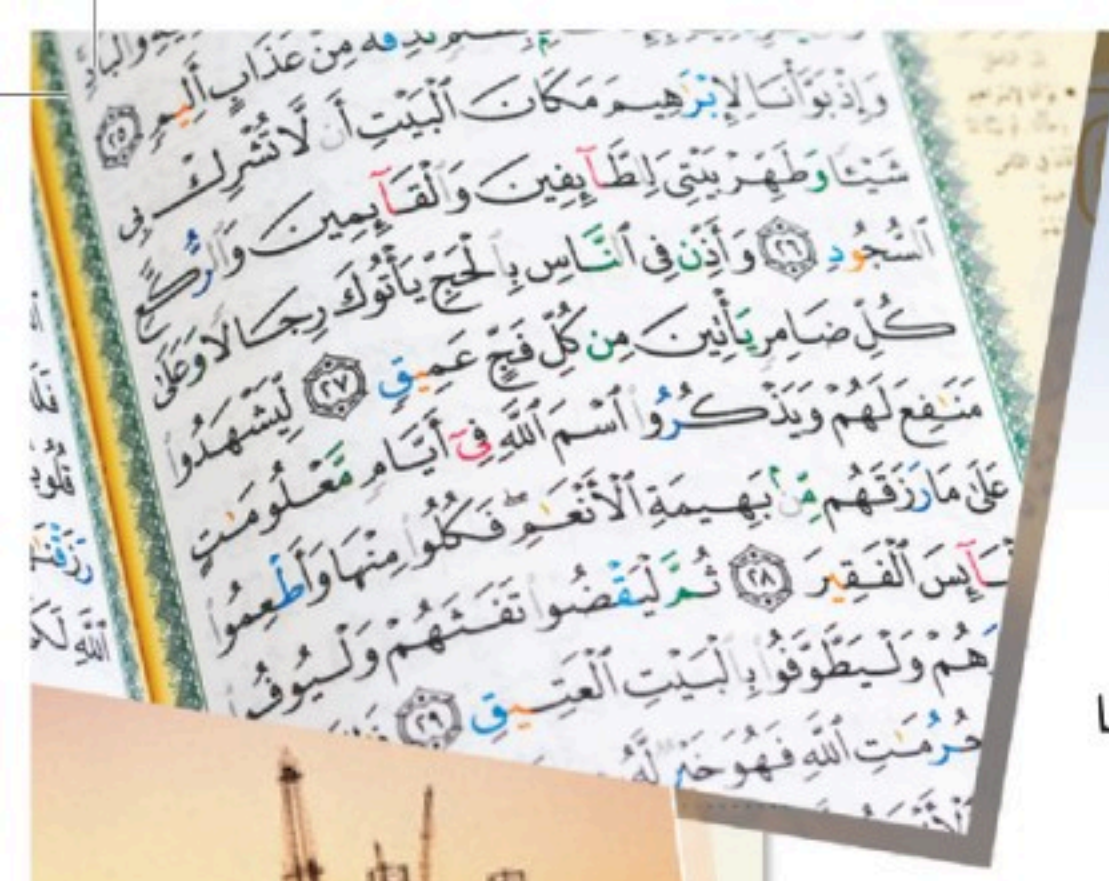 نُذِقْهُ مِنْ عَذَابٍ أَلِيمٍ ٢٥
وَإِذْ بَوَّأْنَا لِإِبْرَٰهِيمَ مَكَانَ ٱلْبَيْتِ أَن لَّا تُشْرِكْ بِى
شَيْـًٔا وَطَهِّرْ بَيْتِىَ لِلطَّآئِفِينَ وَٱلْقَآئِمِينَ وَٱلرُّكَّعِ
ٱلسُّجُودِ ٢٦ وَأَذِّن فِى ٱلنَّاسِ بِٱلْحَجِّ يَأْتُوكَ رِجَالًا وَعَلَىٰ
كُلِّ ضَامِرٍ يَأْتِينَ مِن كُلِّ فَجٍّ عَمِيقٍ ٢٧ لِّيَشْهَدُوا۟
مَنَـٰفِعَ لَهُمْ وَيَذْكُرُوا۟ ٱسْمَ ٱللَّهِ فِىٓ أَيَّامٍ مَّعْلُومَـٰتٍ
عَلَىٰ مَا رَزَقَهُم مِّنۢ بَهِيمَةِ ٱلْأَنْعَـٰمِ ۖ فَكُلُوا۟ مِنْهَا وَأَطْعِمُوا۟
ٱلْفَقِيرَ ٢٨ ثُمَّ لْيَقْضُوا۟ تَفَثَهُمْ وَلْيُوفُوا۟
وَلْيَطَّوَّفُوا۟ بِٱلْبَيْتِ ٱلْعَتِيقِ ٢٩
حُرُمَـٰتِ ٱللَّهِ فَهُوَ خَيْرٌ لَّهُۥ